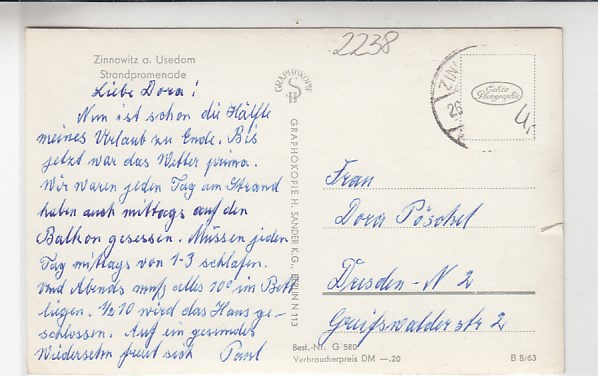 2238
Zinnowitz a. Usedom
Strandpromenade
Liebe Dora!
Nun ist schon die Hälfte
meines Urlaub zu Ende. Bis
jetzt war das Wetter prima.
Wir waren jeden Tag am Strand
haben auch mittags auf den
Balkon gesessen. Müssen jeden
Tag mittags von 1-3 schlafen.
Und Abends muß alles 10⁰ im Bett
liegen. 1/2 10 wird das Haus ge-
schlossen. Auf ein gesundes
Wiedersehn freut sich Paul
GRAPHOKOPIE
GRAPHOKOPIE H. SANDER K.G., BERLIN N 113
ZIN
Echte
Photographie
4,-
Frau
Dora Pöschel
Dresden - N 2
Greifswalder str 2
Best.-Nr. G 580
Verbraucherpreis DM —,20
B 8/63